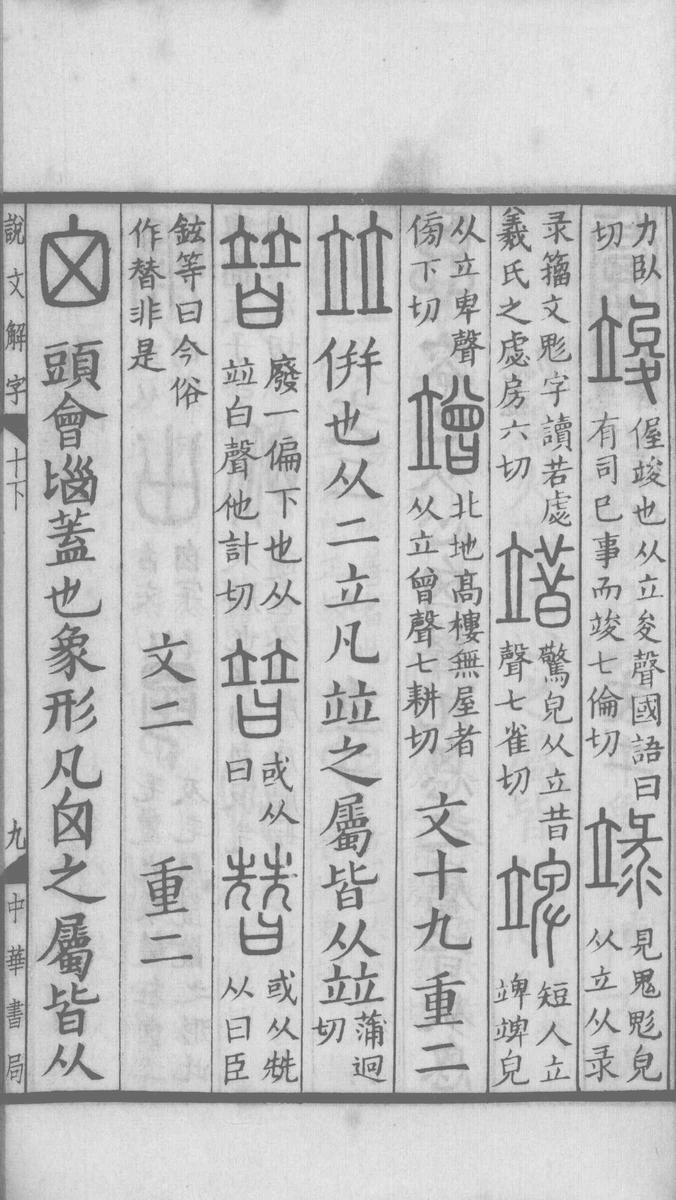 力臥切 竣 偓竣也从立夋聲國語曰有司已事而竣七倫切 䇐 見鬼鬽皃从立从录
录籀文鬽字讀若虙羲氏之虙房六切 䇎 驚皃从立昔聲七雀切 竨 短人立竨竨皃
从立卑聲傍下切 竲 北地高樓無屋者从立曾聲七耕切 文十九 重二
竝 併也从二立凡竝之屬皆从竝蒲迥切
暜 廢一偏下也从竝白聲他計切 朁 或从曰 替 或从兟从曰臣
鉉等曰今俗作替非是 文二 重二
囟 頭會匘蓋也象形凡囟之屬皆从
說文解字 十下 九 中華書局